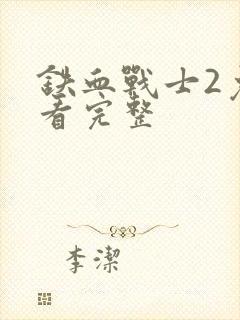 鉄血戰士2
看完整
李潔